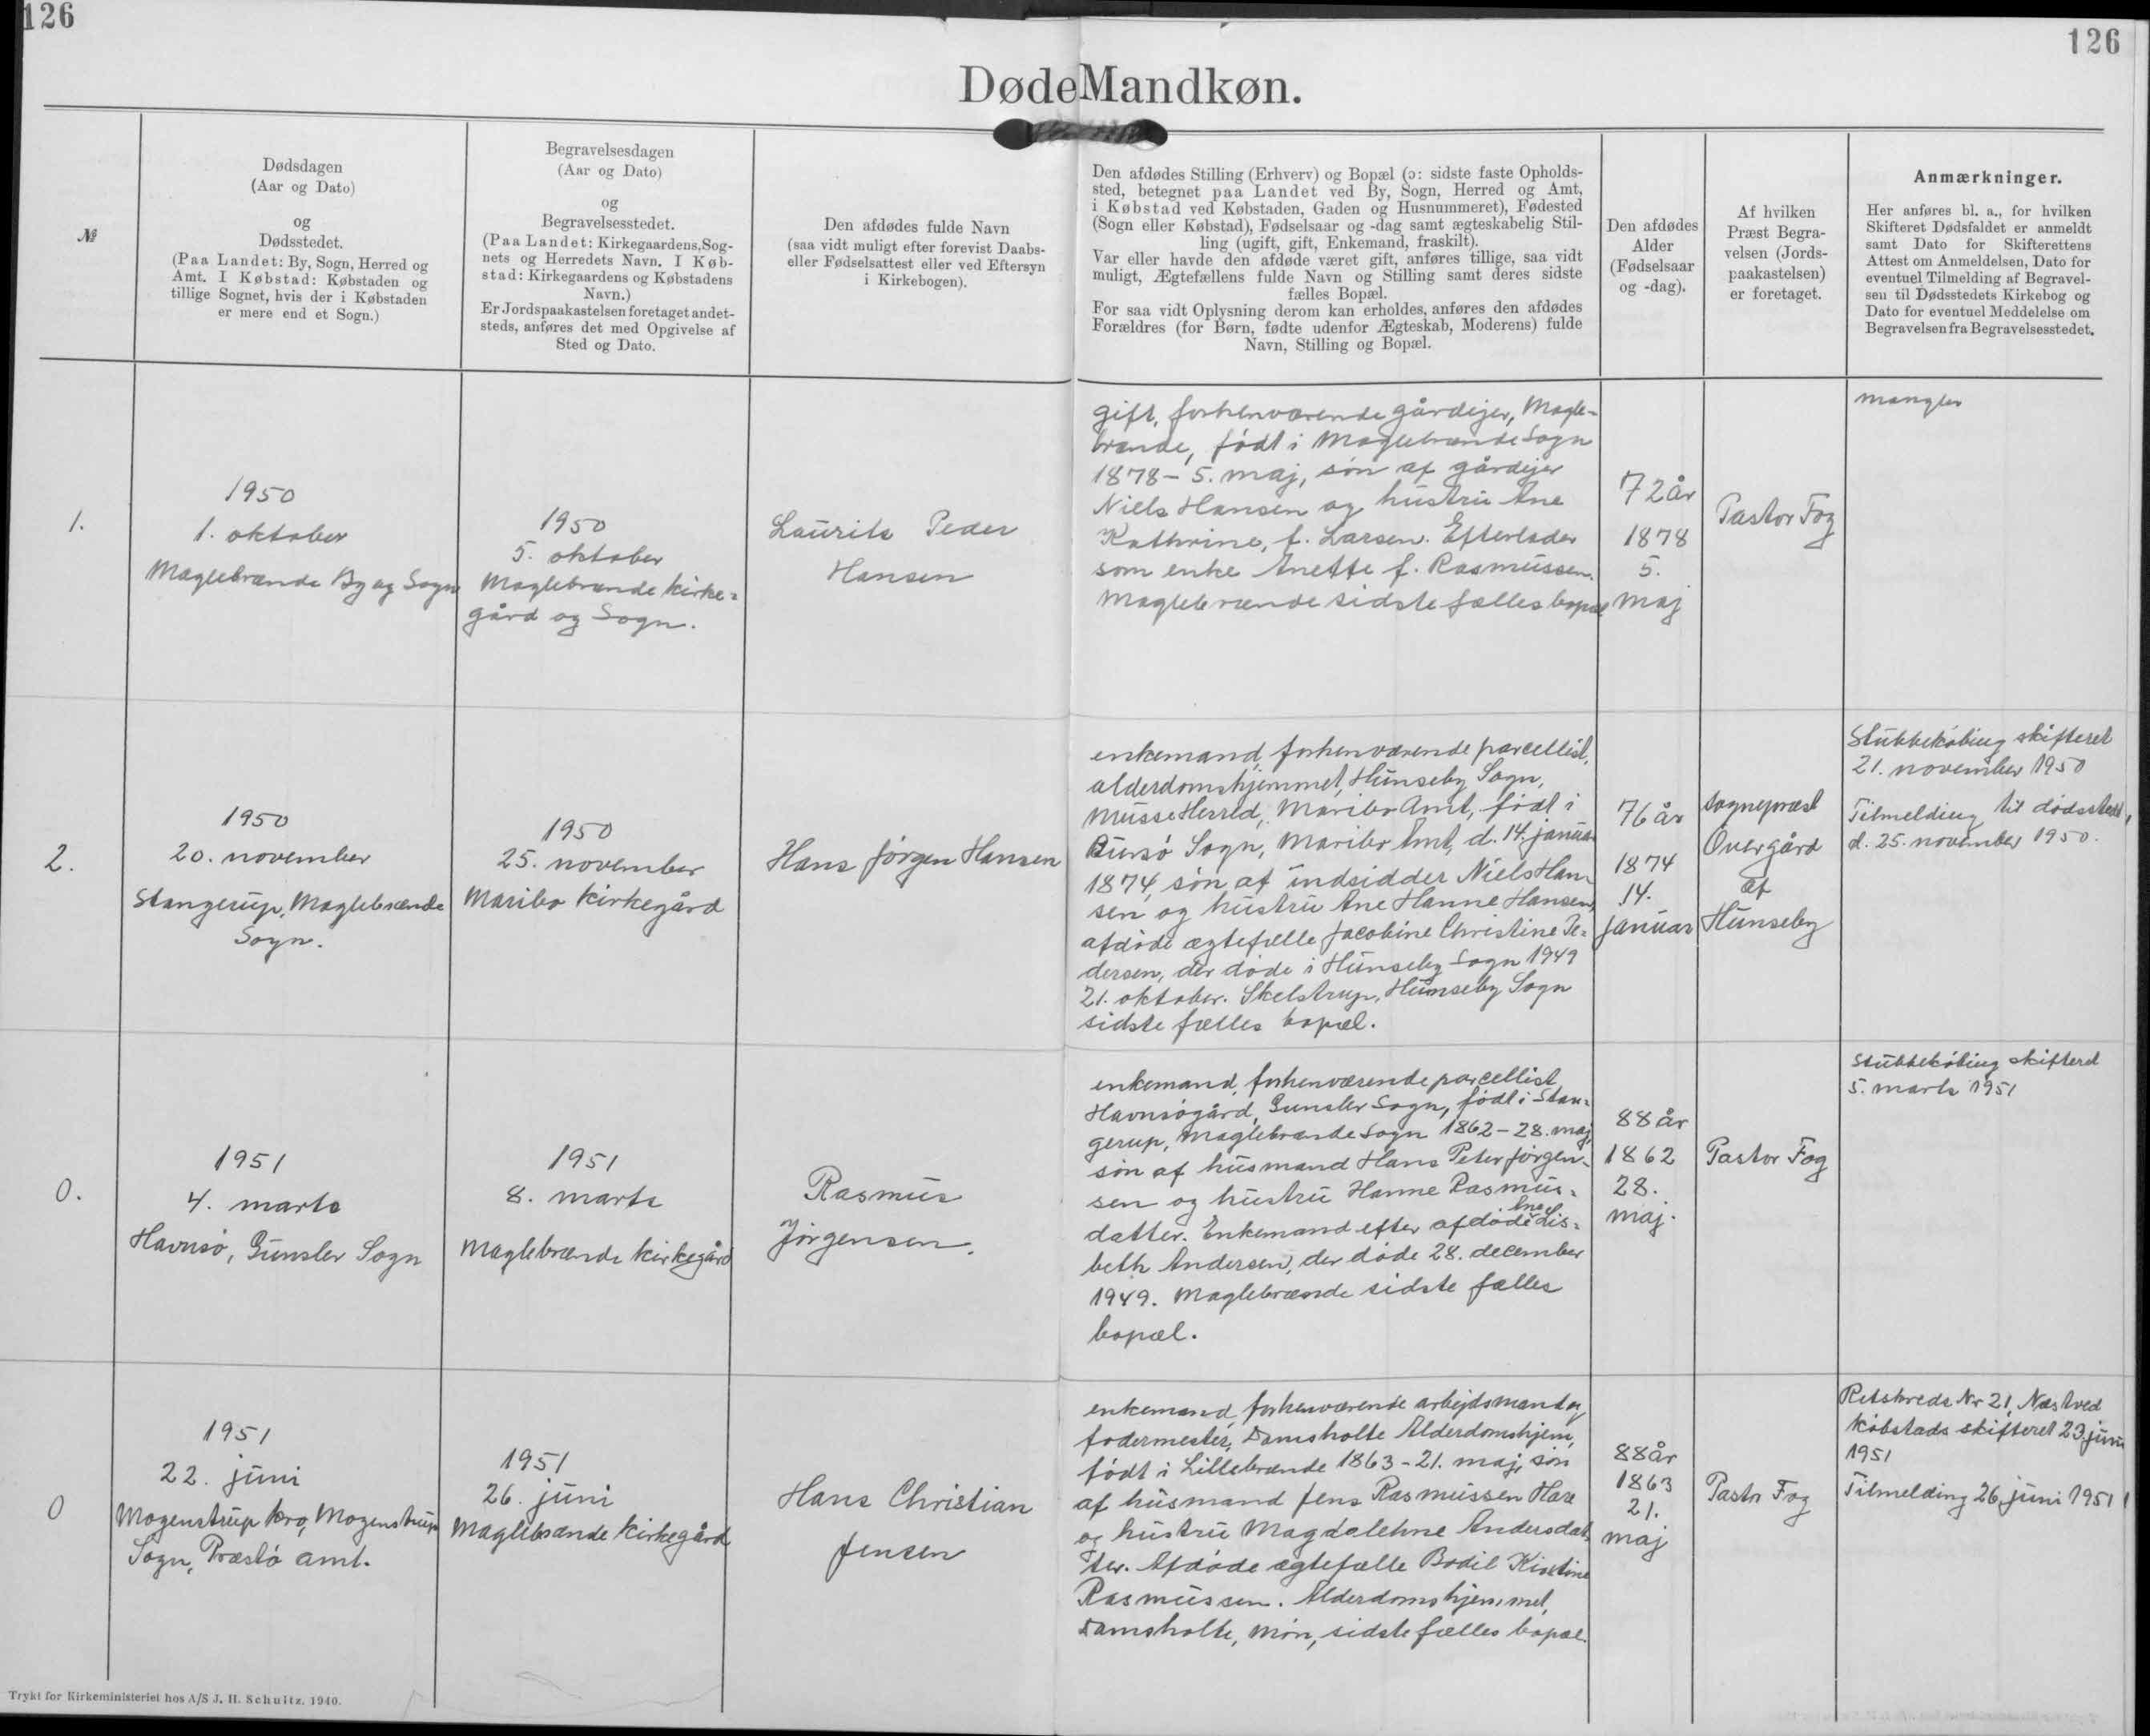 126
126
Døde Mandkøn.
№
Dødsdagen
(Aar og Dato)
og
Dødsstedet.
(Paa Landet: By, Sogn, Herred og
Amt. I Købstad: Købstaden og
tillige Sognet, hvis der i Købstaden
er mere end et Sogn.)
Begravelsesdagen
(Aar og Dato)
og
Begravelsesstedet.
(Paa Landet: Kirkegaardens, Sog-
nets og Herredets Navn. I Køb-
stad: Kirkegaardens og Købstadens
Navn.)
Er Jordspaakastelsen foretaget andet-
steds, anføres det med Opgivelse af
Sted og Dato.
Den afdødes fulde Navn
(saa vidt muligt efter forevist Daabs-
eller Fødselsattest eller ved Eftersyn
i Kirkebogen).
Den afdødes Stilling (Erhverv) og Bopæl (ɔ: sidste faste Opholds-
sted, betegnet paa Landet ved By, Sogn, Herred og Amt,
i Købstad ved Købstaden, Gaden og Husnummeret), Fødested
(Sogn eller Købstad), Fødselsaar og -dag samt ægteskabelig Stil-
ling (ugift, gift, Enkemand, fraskilt).
Var eller havde den afdøde været gift, anføres tillige, saa vidt
muligt, Ægtefællens fulde Navn og Stilling samt deres sidste
fælles Bopæl.
For saa vidt Oplysning derom kan erholdes, anføres den afdødes
Forældres (for Børn, fødte udenfor Ægteskab, Moderens) fulde
Navn, Stilling og Bopæl.
Den afdødes
Alder
(Fødselsaar
og -dag).
Af hvilken
Præst Begra-
velsen (Jords-
paakastelsen)
er foretaget.
Anmærkninger.
Her anføres bl. a., for hvilken
Skifteret Dødsfaldet er anmeldt
samt Dato for Skifterettens
Attest om Anmeldelsen, Dato for
eventuel Tilmelding af Begravel-
sen til Dødsstedets Kirkebog og
Dato for eventuel Meddelelse om
Begravelsen fra Begravelsesstedet.
1.
1950
1. oktober
Maglebrænde By og Sogn
1950
5. oktober
Maglebrænde kirke=
gård og Sogn.
Laurits Peder
Hansen
gift, forhenværende gårdejer, Magle-
brænde, født i Maglebrænde Sogn
1878 - 5. maj, søn af gårdejer
Niels Hansen og hustru Ane
Kathrine, f. Larsen. Efterlader
som enke Anette f. Rasmussen.
Maglebrænde sidste fælles bopæl
72 år
1878
5.
maj
Pastor Fog
mangler
2.
1950
20. november
Stangerup, Maglebrænde
Sogn.
1950
25. november
Maribo kirkegård
Hans Jørgen Hansen
enkemand, forhenværende parcellist,
alderdomshjemmet, Hunseby Sogn,
Musse Herred, Maribo Amt, født i
Bursø Sogn, Maribo Amt, d. 14. januar
1874, søn af indsidder Niels Han-
sen og hustru Ane Hanne Hansen,
afdøde ægtefælle Jacobine Christine Pe=
dersen, der døde i Hunseby Sogn 1949
21. oktober. Skelstrup, Hunseby Sogn
sidste fælles bopæl.
76 år
1874
14.
januar
sognepræst
Overgård
af
Hunseby
Stubbekøbing skifteret
21. november 1950
Tilmelding til dødsstedet,
d. 25. november 1950.
0.
1951
4. marts
Havnsø, Gunslev Sogn
1951
8. marts
Maglebrænde kirkegård
Rasmus
Jørgensen.
enkemand, forhenværende parcellist
Havnsøgård, Gunslev Sogn, født i Stan=
gerup, Maglebrænde Sogn 1862 - 28. maj,
søn af husmand Hans Peter Jørgen-
sen og hustru Hanne Rasmus=
datter. Enkemand efter afdøde Ane Lis=
beth Andersen, der døde 28. december
1949. Maglebrænde sidste fælles
bopæl.
88 år
1862
28.
maj.
Pastor Fog
Stubbekøbing skifteret
5. marts 1951
0
1951
22. juni
Mogenstrup kro, Mogenstrup
Sogn, Præstø amt.
1951
26. juni
Maglebrænde kirkegård
Hans Christian
Jensen
enkemand, forhenværende arbejdsmand og
fodermester, Damsholte Alderdomshjem,
født i Lillebrænde 1863 - 21. maj, søn
af husmand Jens Rasmussen Hare
og hustru Magdalehne Andersdat=
ter. Afdøde ægtefælle Bodil Kirstine
Rasmussen. Alderdomshjemmet,
Damsholte, Møn, sidste fælles bopæl.
88 år
1863
21.
maj
Pastor Fog
Retskreds Nr 21, Næstved
købstads skifteret 23. juni
1951
Tilmelding 26. juni 1951
Trykt for Kirkeministeriet hos A/S J. H. Schultz. 1940.